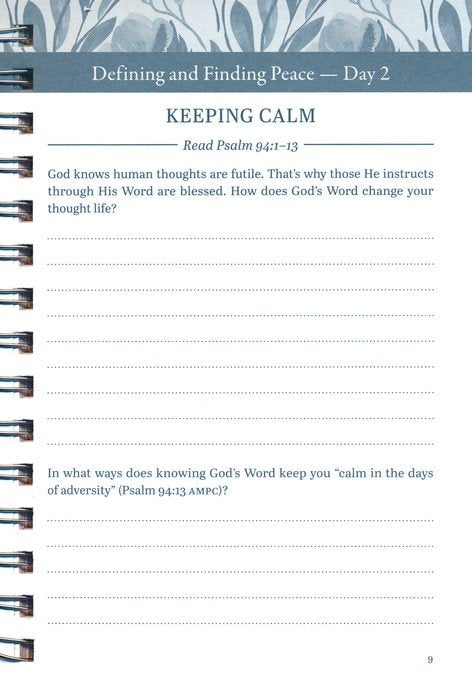 Defining and Finding Peace — Day 2
KEEPING CALM
Read Psalm 94:1–13
God knows human thoughts are futile. That's why those He instructs
through His Word are blessed. How does God's Word change your
thought life?
In what ways does knowing God's Word keep you “calm in the days
of adversity” (Psalm 94:13 AMPC)?
9